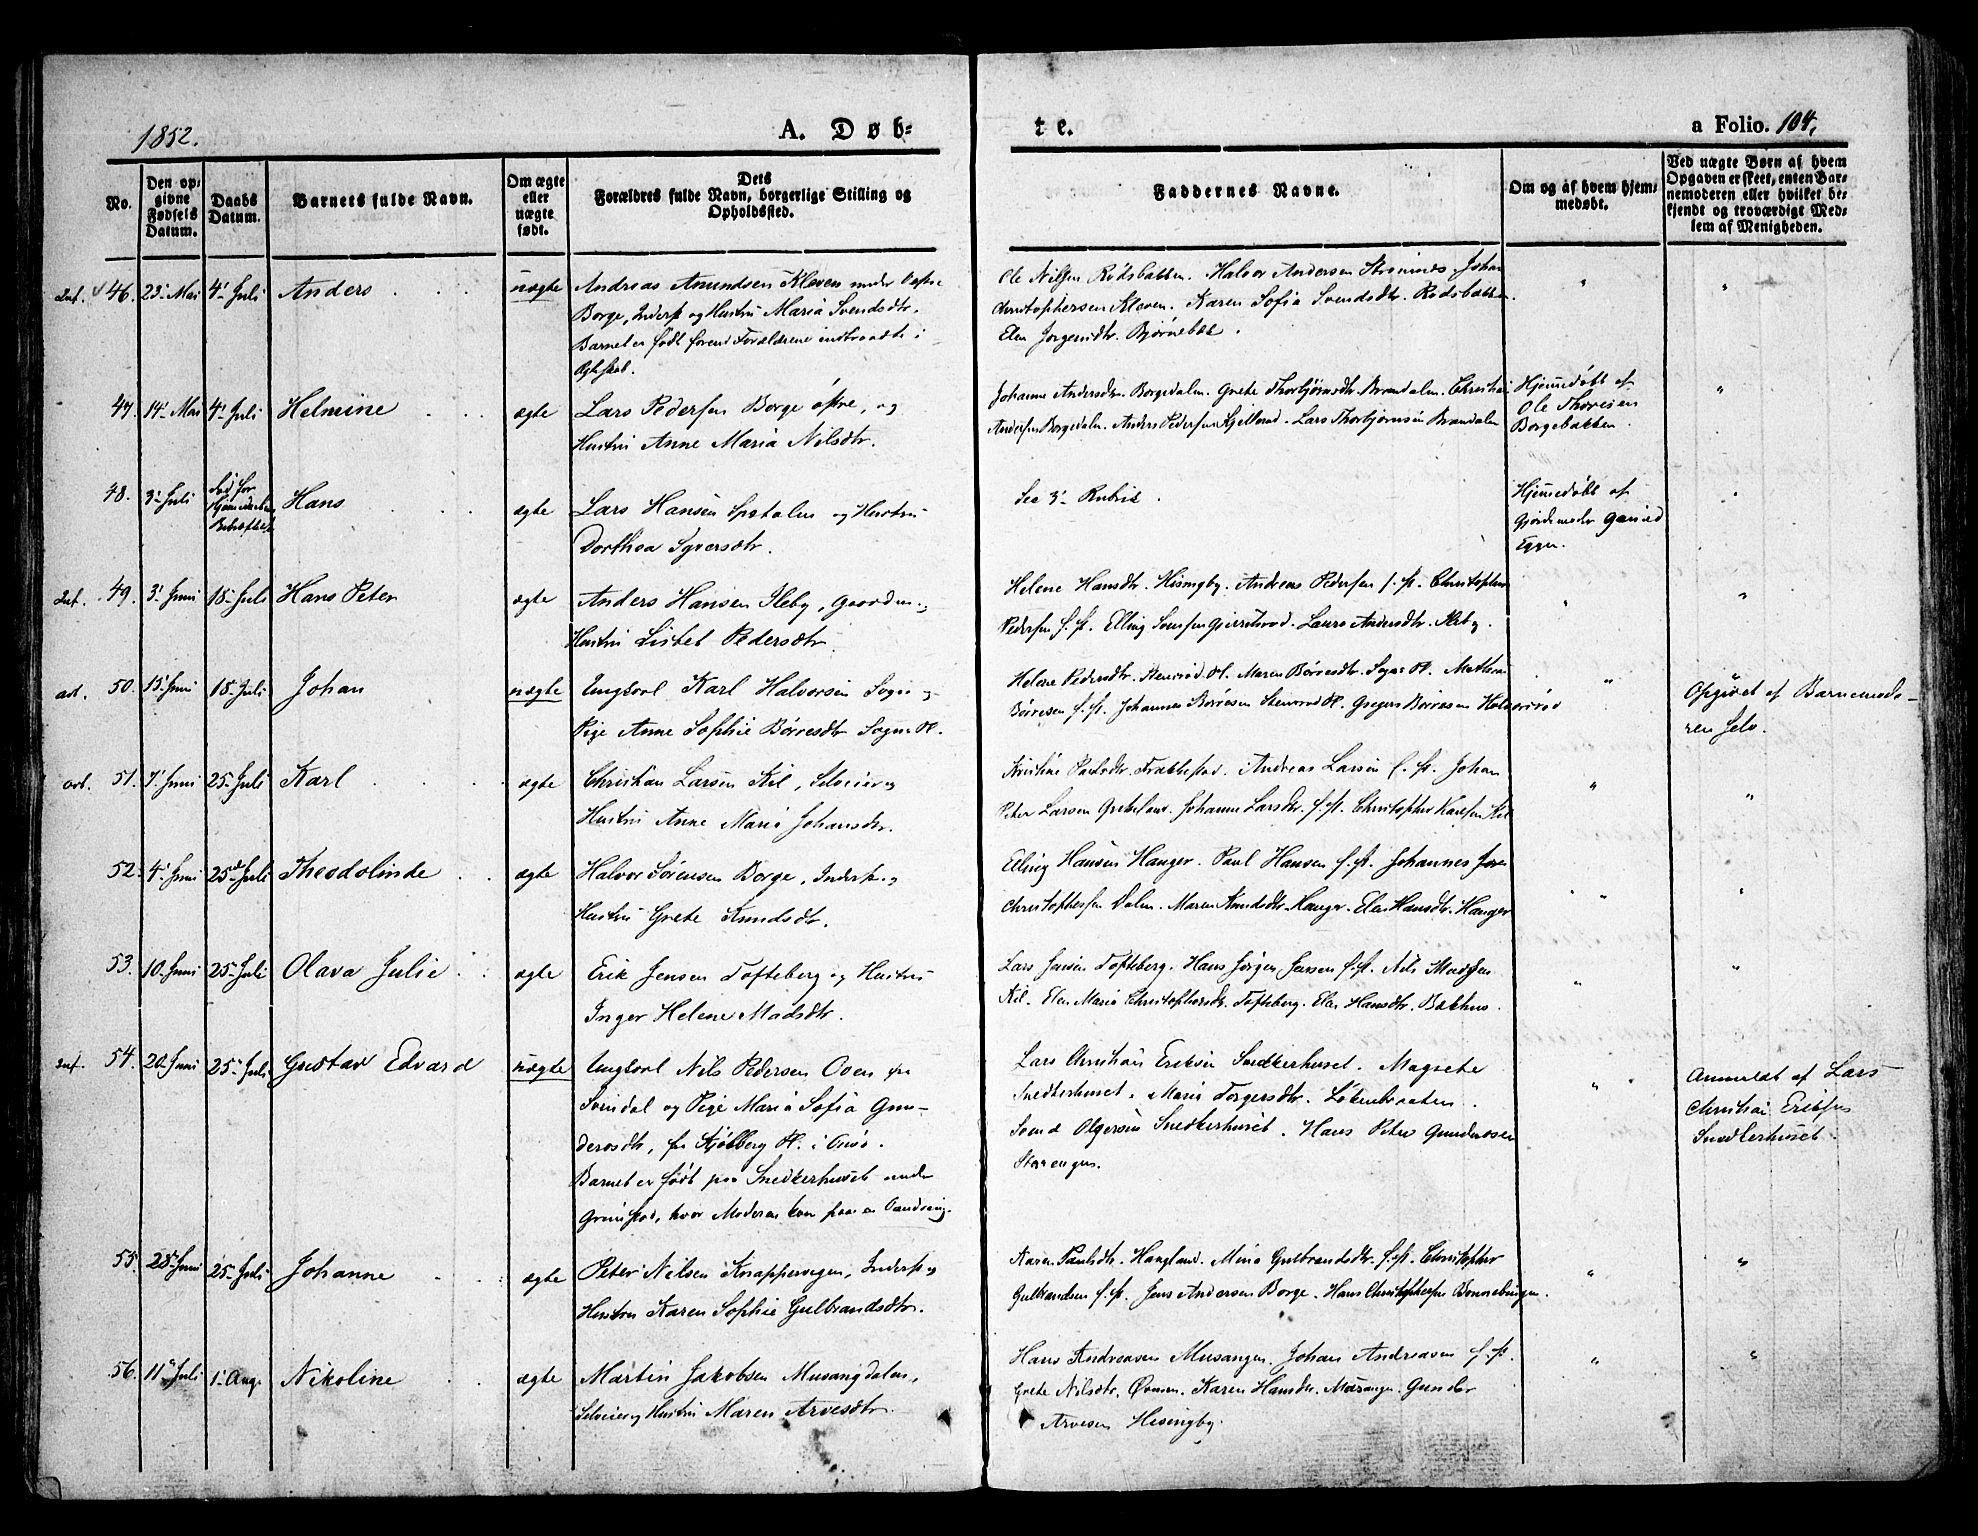 1852.
A. Døb-
te.
a Folio. 104,
No.
Den opgivne Fødsels Datum.
Daabs Datum.
Barnets fulde Navn.
Om ægte eller uægte født.
Dets Forældres fulde Navn, borgerlige Stilling og Opholdssted.
Faddernes Navne.
Om og af hvem hjemmedøbt.
Ved uægte Børn af hvem Opgaven er skeet, enten Barnemoderen eller hvilket bekjendt og troværdigt Medlem af Menigheden.
46. 23 Mai 4 Juli Anders uægte Andreas Amundsen Kleven under
Borge, Inderst og Hustru Maria Svendsdtr.
Barnet er født forend Forældrene indtraadte i
Ægteskab.
Ole Nilsen Rødsbakken. Halvor Andersen Strømnes. Johan
Christophersen Kleven. Karen Sofia Svendsdtr. Rødsbakken.
Elen Jørgensdtr. Bjørnebæk.
47. 14 Mai 4 Juli Helmine ægte Lars Pedersen Borge øfre, og
Hustru Anne Maria Nilsdtr.
Johanne Andersdtr. Borgedalen. Grete Thorbjørnsdtr. Brændalen. Christian
Andersen Borgedalen. Anders Pedersen Lars Thorbjørnsen Brændalen
Hjemmedøbt af
Ole Thoresen
Borgebakken.
48. 3 Juli død før
Hans ægte Lars Hansen og Hustru
Dorthea Syversdtr.
See 3 Rubrik.
Hjemmedøbt af
Gjordemoder
49. 3 Juni 18 Juli Hans Peter ægte Anders Hansen Ileby, Gaardm. og
Hustru Lisbet Pedersdtr.
Helene Hansdtr. Hisingby. Andreas Pedersen f. st. Christopher
Pedersen f. st. Elling Laura Andersdtr.
50. 15 Juni 18 Juli Johan uægte Ungkarl Karl Halvorsen og
Pige Anne Sophie Børresdtr Sogne Pl.
Helene Pedersdtr. Stenrød Pl. Maren Børresdtr. Sogne Pl. Mathias
Børresen f. st. Johannes Børresen Stenrød Pl. Gregers Børresen
Opgivet af Barnemode-
ren selv.
51. 7 Juni 25 Juli Karl ægte Christian Larsen Kil, Selveier og
Hustru Anne Maria Johansdtr.
Kristine Paulsdtr. Andreas Larsen f. st. Johan
Peter Larsen Johanne Larsdtr. f. st. Christopher Kil
52. 4 Juni 25 Juli Theodolinde ægte Halvor Sørensen Borge, Inderst og
Hustru Grete Knudsdtr.
Elling Hansen Hanger. Paul Hansen f. st. Johannes
Christophersen Dalen. Maren Knudsdtr. Hanger. Elen Hansdtr. Hanger
53. 10 Juni 25 Juli Olava Julie ægte Erik Jensen Tofteberg og Hustru
Inger Helene Madsdtr.
Lars Jensen Tofteberg. Hans Jørgen Jensen f. st. Nils Madsen
Kil. Elen Maria Christophersdtr. Tofteberg. Elen Hansdtr. Bakhus.
54. 20 Juni 25 Juli Gustav Edvard uægte Ungkarl Nils Pedersen Oven fra
Svindal og Pige Maria Sofia Gun-
dersdtr, fra Kjølberg Pl. i Onsø.
Barnet er født paa Snedkerhuset under
Grimstad, hvor Moderen kom paa en Vandring.
Lars Christian Eriksen Snedkerhuset. Magrete
Snedkerhuset. Maria Torgersdtr. Løkenbraaten.
Svend Olgersen Snedkerhuset. Hans Peter Gundersen
Anmeldt af Lars
Christian Eriksen
Snedkerhuset.
55. 28 Juni 25 Juli Johanne ægte Peter Nilsen Knappervegen, Inderst og
Hustru Karen Sophie Gulbrandsdtr.
Karen Paulsdtr. Haugland. Mina Gulbrandsdtr. f. st. Christopher
Gulbrandsen f. st. Jens Andersen Borge. Hans Christophersen
56. 11 Juli 1 Aug. Nikoline ægte Martin Jakobsen Musangdalen,
Selveier og Hustru Maren Arvesdtr.
Hans Andreasen Musangen. Johan Andreasen f. st.
Grete Nilsdtr. Karen Hansdtr. Musangen. Gunder
Arvesen Hisingby.